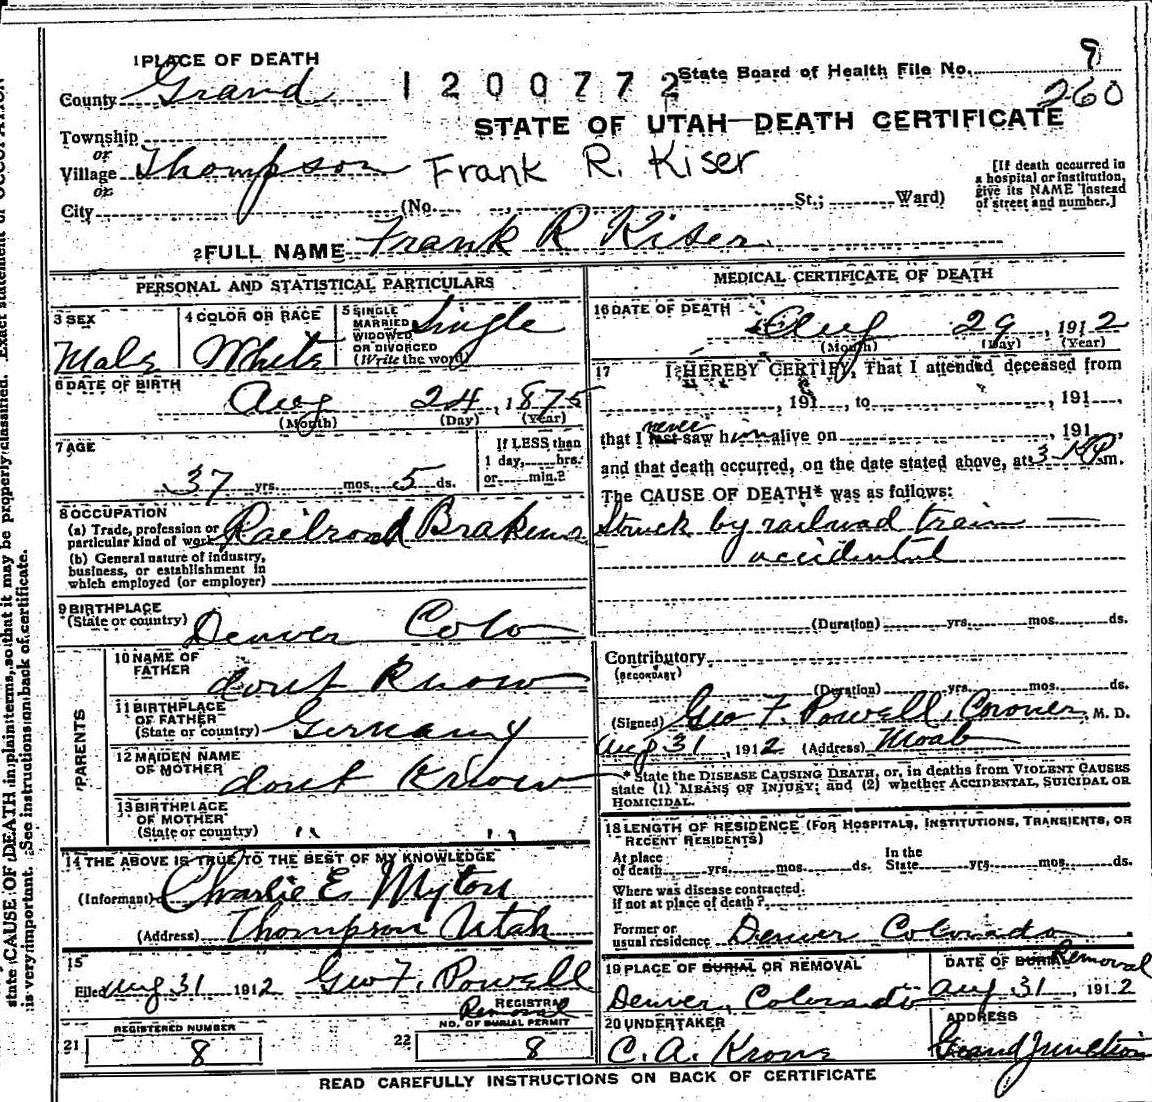 1 PLACE OF DEATH
County Grand
1200772
State Board of Health File No. 9
260
STATE OF UTAH—DEATH CERTIFICATE
Township
or
Village Thompson
Frank R. Kiser
or
City (No. , St.; Ward)
[If death occurred in
a hospital or institution,
give its NAME instead
of street and number.]
2 FULL NAME Frank R Kiser
PERSONAL AND STATISTICAL PARTICULARS
3 SEX
Male
4 COLOR OR RACE
White
5 SINGLE
MARRIED
WIDOWED
OR DIVORCED
(Write the word)
Single
6 DATE OF BIRTH
Aug 24, 1875
(Month) (Day) (Year)
7 AGE
37 yrs. mos. 5 ds.
If LESS than
1 day, hrs.
or min.?
8 OCCUPATION
(a) Trade, profession or
particular kind of work Railroad Brakeman
(b) General nature of industry,
business, or establishment in
which employed (or employer)
9 BIRTHPLACE
(State or country) Denver Colo
PARENTS
10 NAME OF
FATHER dont Know
11 BIRTHPLACE
OF FATHER
(State or country) Germany
12 MAIDEN NAME
OF MOTHER dont Know
13 BIRTHPLACE
OF MOTHER
(State or country) " "
14 THE ABOVE IS TRUE TO THE BEST OF MY KNOWLEDGE
(Informant) Charlie E. Myton
(Address) Thompson Utah
15
Filed Aug 31 1912 Geo F. Powell
REGISTRAR
Removal
21 REGISTERED NUMBER
8
22 NO. OF BURIAL PERMIT
8
MEDICAL CERTIFICATE OF DEATH
16 DATE OF DEATH
Aug 29, 1912
(Month) (Day) (Year)
17 I HEREBY CERTIFY, That I attended deceased from
, 191 , to , 191 ,
never
that I last saw him alive on , 191 ,
and that death occurred, on the date stated above, at 3 P m.
The CAUSE OF DEATH* was as follows:
Struck by railroad train —
accidental
(Duration) yrs. mos. ds.
Contributory
(SECONDARY)
(Duration) yrs. mos. ds.
(Signed) Geo F. Powell, Coroner, M. D.
Aug 31, 1912 (Address) Moab
* State the DISEASE CAUSING DEATH, or, in deaths from VIOLENT CAUSES
state (1) MEANS OF INJURY; and (2) whether ACCIDENTAL, SUICIDAL OR
HOMICIDAL.
18 LENGTH OF RESIDENCE (FOR HOSPITALS, INSTITUTIONS, TRANSIENTS, OR
RECENT RESIDENTS)
At place
of death yrs. mos. ds.
In the
State yrs. mos. ds.
Where was disease contracted.
if not at place of death?
Former or
usual residence Denver Colorado
19 PLACE OF BURIAL OR REMOVAL
Denver, Colorado
DATE OF BURIAL Removal
Aug 31, 1912
20 UNDERTAKER
C. A. Krons
ADDRESS
Grand Junction
READ CAREFULLY INSTRUCTIONS ON BACK OF CERTIFICATE
state CAUSE OF DEATH in plain terms, so that it may be properly classified. Exact statement of OCCUPATION
is very important. See instructions on back of certificate.